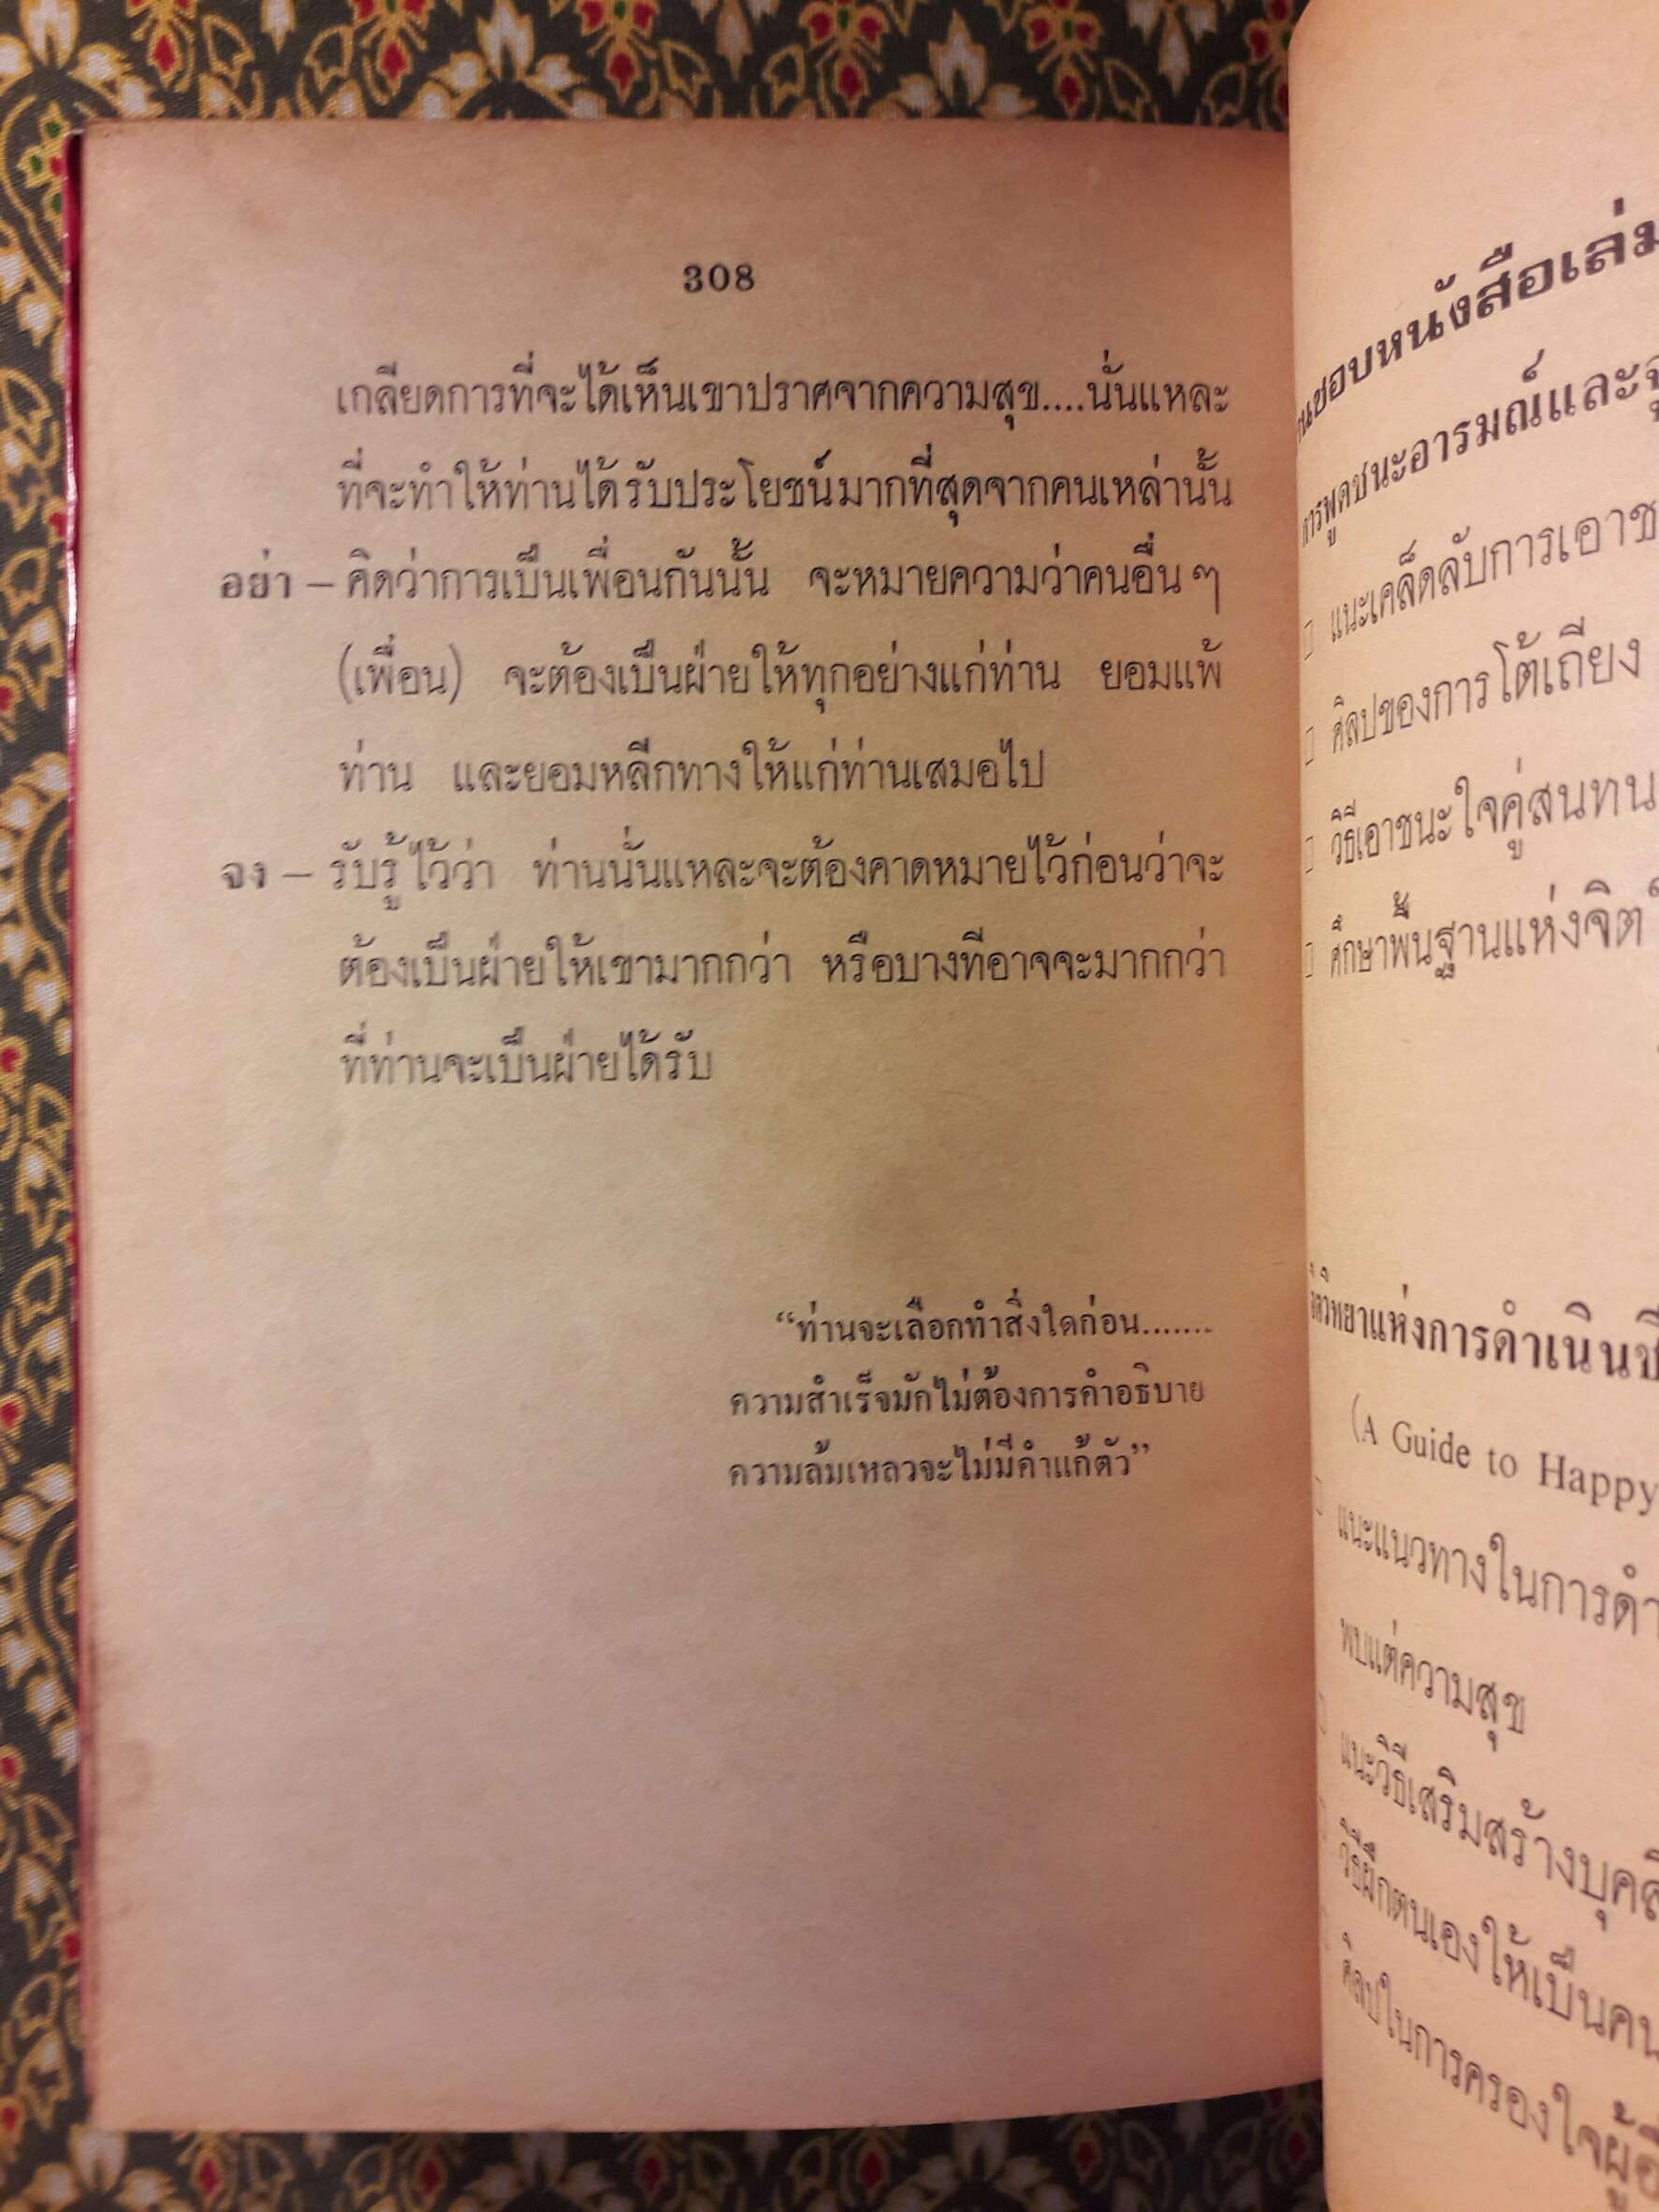 308
เกลียดการที่จะได้เห็นเขาปราศจากความสุข....นั่นแหละ
ที่จะทำให้ท่านได้รับประโยชน์มากที่สุดจากคนเหล่านั้น
อย่า – คิดว่าการเป็นเพื่อนกันนั้น จะหมายความว่าคนอื่น ๆ
(เพื่อน) จะต้องเป็นฝ่ายให้ทุกอย่างแก่ท่าน ยอมแพ้
ท่าน และยอมหลีกทางให้แก่ท่านเสมอไป
จง – รับรู้ไว้ว่า ท่านนั่นแหละจะต้องคาดหมายไว้ก่อนว่าจะ
ต้องเป็นฝ่ายให้เขามากกว่า หรือบางทีอาจจะมากกว่า
ที่ท่านจะเป็นฝ่ายได้รับ
“ท่านจะเลือกทำสิ่งใดก่อน.......
ความสำเร็จมักไม่ต้องการคำอธิบาย
ความล้มเหลวจะไม่มีคำแก้ตัว”
นชอบหนังสือเล่ม
การพูดชนะอารมณ์และจู
แนะเคล็ดลับการเอาช
ศิลปของการโต้เถียง
วิธีเอาชนะใจคู่สนทน
ศึกษาพื้นฐานแห่งจิต
จิตวิทยาแห่งการดำเนินชี
(A Guide to Happy
แนะแนวทางในการดำ
พบแต่ความสุข
แนะวิธีเสริมสร้างบุคลิ
วิธีฝึกตนเองให้เป็นคน
ศิลปในการครองใจผู้อื